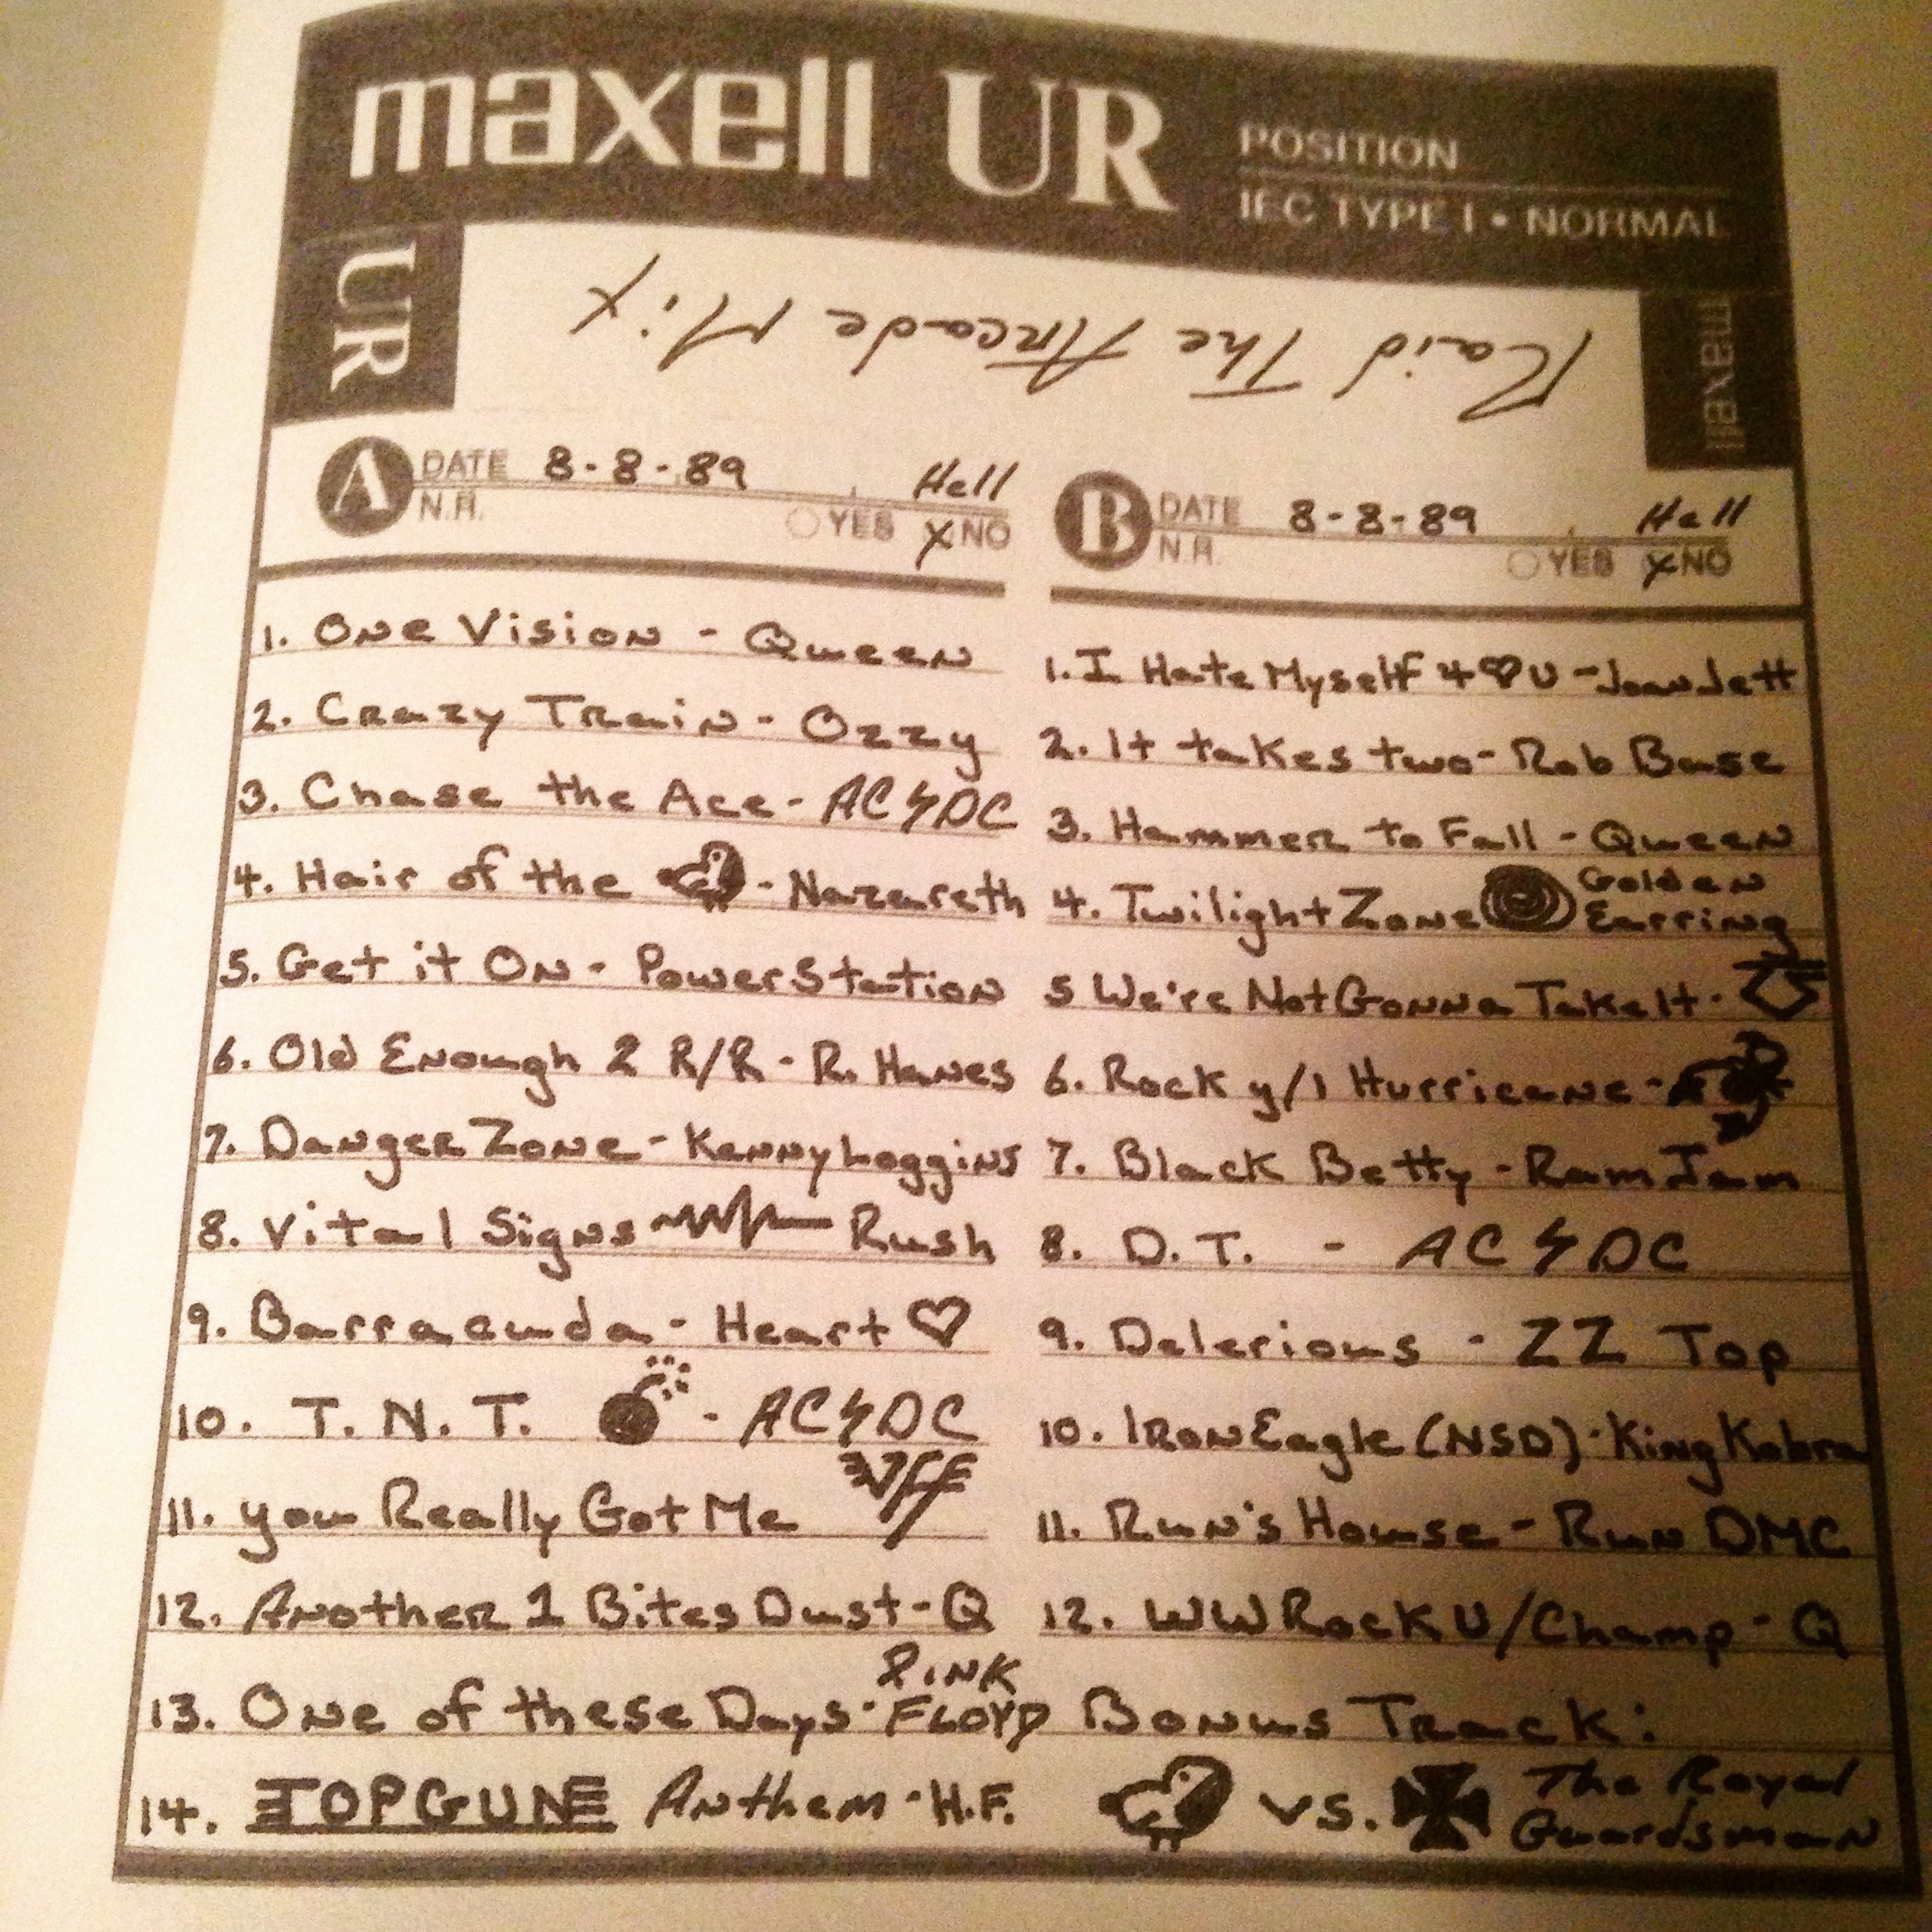 maxell UR
POSITION
IEC TYPE I • NORMAL
UR
maxell
Raid The Arcade Mix
A DATE 8-8-89 Hell
N.R. YES X NO
B DATE 8-8-89 Hell
N.R. YES X NO
1. One Vision - Queen
2. Crazy Train - Ozzy
3. Chase the Ace - AC⚡DC
4. Hair of the - Nazareth
5. Get it On - Power Station
6. Old Enough 2 R/R - R. Hanes
7. Danger Zone - Kenny Loggins
8. Vital Signs Rush
9. Barracuda - Heart ♡
10. T.N.T. - AC⚡DC
11. You Really Got Me VH
12. Another 1 Bites Dust - Q
13. One of these Days - PINK FLOYD
14. TOPGUN Anthem - H.F.
1. I Hate Myself 4 ♡ U - Joan Jett
2. It takes two - Rob Base
3. Hammer to Fall - Queen
4. Twilight Zone Golden Earring
5 We're Not Gonna Take It -
6. Rock y/l Hurricane -
7. Black Betty - Ram Jam
8. D.T. - AC⚡DC
9. Delerious - ZZ Top
10. Iron Eagle (NSD) - King Kobra
11. Run's House - Run DMC
12. WW Rock U/Champ - Q
Bonus Track:
vs. The Royal Guardsman